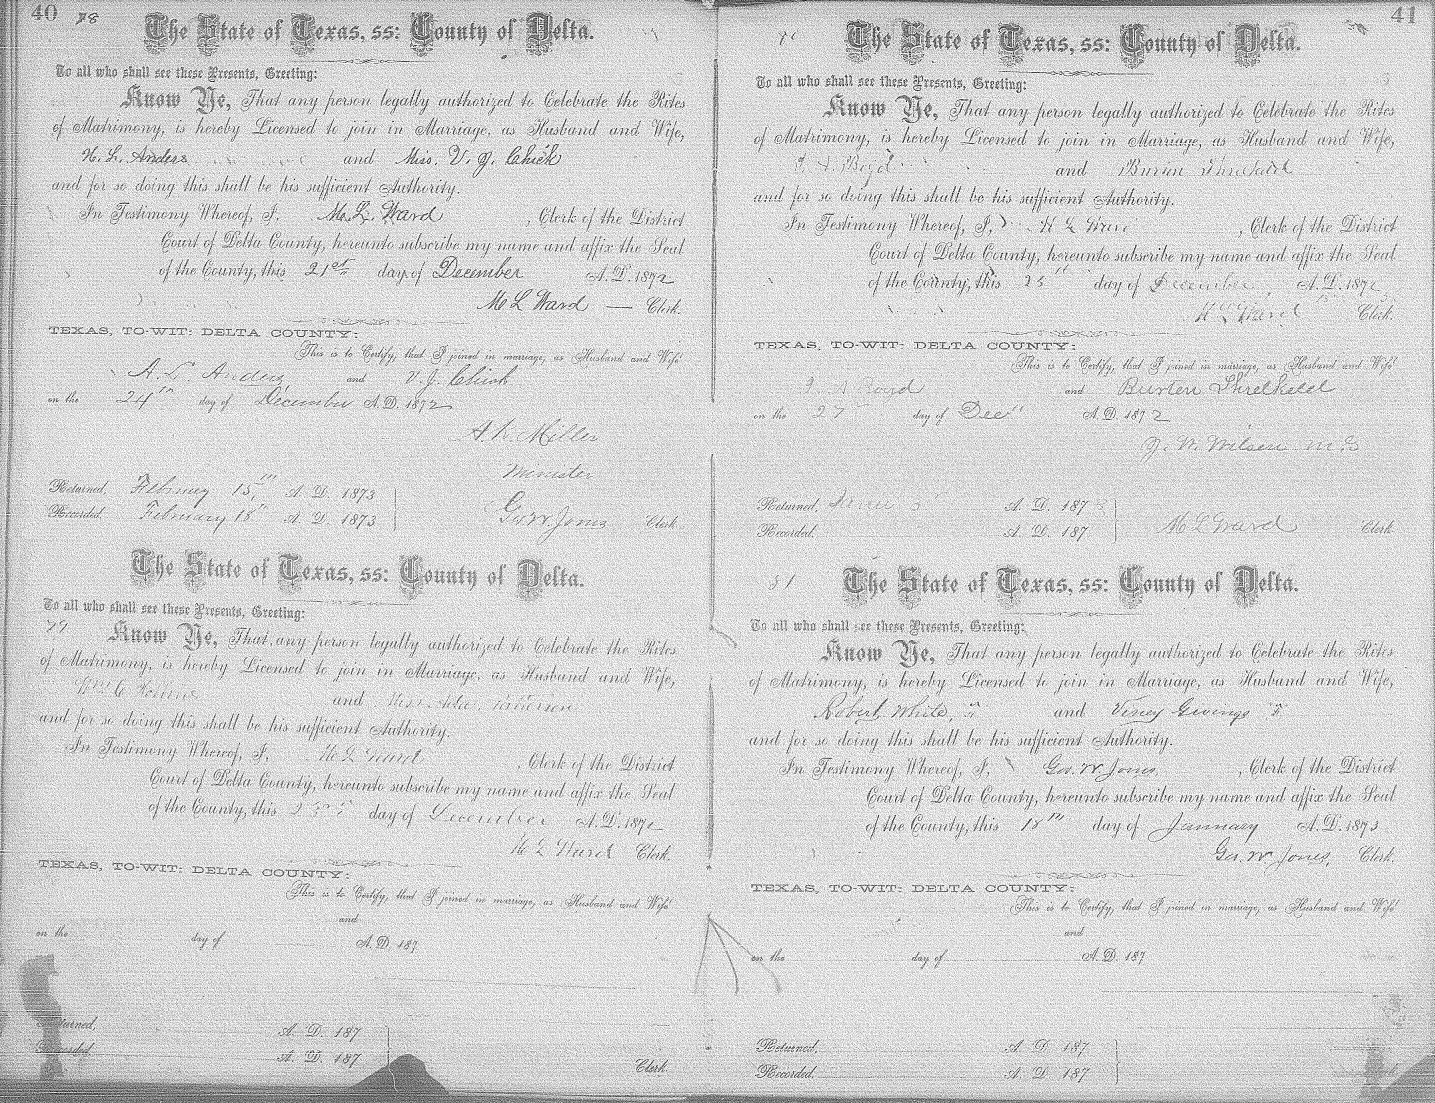 40
78
The State of Texas, ss: County of Delta.
To all who shall see these Presents, Greeting:
Know Ye, That any person legally authorized to Celebrate the Rites
of Matrimony, is hereby Licensed to join in Marriage, as Husband and Wife,
H. L. Anders and Miss. V. J. Chick
and for so doing this shall be his sufficient Authority.
In Testimony Whereof, I, M. L. Ward, Clerk of the District
Court of Delta County, hereunto subscribe my name and affix the Seal
of the County, this 21st day of December A. D. 1872
M L Ward — Clerk.
TEXAS, TO-WIT: DELTA COUNTY:
This is to Certify, that I joined in marriage, as Husband and Wife
A. L. Anders and V. J. Chick
on the 24th day of December A. D. 1872
Miller
Minister
Returned, February 15th A. D. 1873
Recorded. February 18th A. D. 1873
Geo W. Jones Clerk
The State of Texas, ss: County of Delta.
To all who shall see these Presents, Greeting:
Know Ye, That any person legally authorized to Celebrate the Rites
of Matrimony, is hereby Licensed to join in Marriage, as Husband and Wife,
and Miss
and for so doing this shall be his sufficient Authority.
In Testimony Whereof, I, M L Ward, Clerk of the District
Court of Delta County, hereunto subscribe my name and affix the Seal
of the County, this day of December A. D. 1872
M L Ward Clerk.
TEXAS, TO-WIT: DELTA COUNTY:
This is to Certify, that I joined in marriage, as Husband and Wife
and
on the day of A. D. 187
Returned, A. D. 187
Recorded. A. D. 187
Clerk.
41
The State of Texas, ss: County of Delta.
To all who shall see these Presents, Greeting:
Know Ye, That any person legally authorized to Celebrate the Rites
of Matrimony, is hereby Licensed to join in Marriage, as Husband and Wife,
Boyd and Threlkeld
and for so doing this shall be his sufficient Authority.
In Testimony Whereof, I, M L Ward, Clerk of the District
Court of Delta County, hereunto subscribe my name and affix the Seal
of the County, this 25th day of December A. D. 1872
M L Ward Clerk.
TEXAS, TO-WIT: DELTA COUNTY:
This is to Certify, that I joined in marriage, as Husband and Wife
Boyd and Threlkeld
on the 27 day of Dec A. D. 1872
J. W. Wilson M. G
Returned, A. D. 187
Recorded. A. D. 187
M L Ward Clerk
81
The State of Texas, ss: County of Delta.
To all who shall see these Presents, Greeting:
Know Ye, That any person legally authorized to Celebrate the Rites
of Matrimony, is hereby Licensed to join in Marriage, as Husband and Wife,
Robert White, and Viney Givings
and for so doing this shall be his sufficient Authority.
In Testimony Whereof, I, Geo. W Jones, Clerk of the District
Court of Delta County, hereunto subscribe my name and affix the Seal
of the County, this 18th day of January A. D. 1873
Geo. W Jones, Clerk.
TEXAS, TO-WIT: DELTA COUNTY:
This is to Certify, that I joined in marriage, as Husband and Wife
and
on the day of A. D. 187
Returned, A. D. 187
Recorded. A. D. 187